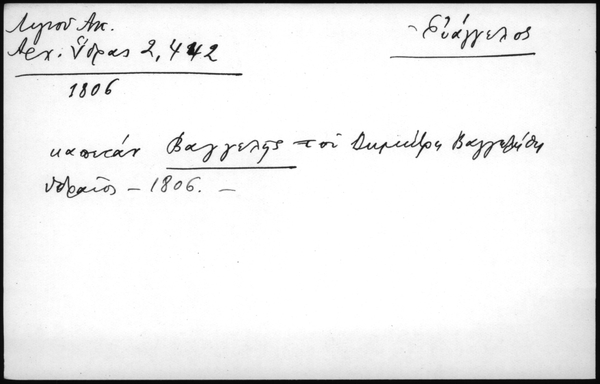 Λιγνοῦ Ἀντ.
Ἀρχ. Ὕδρας 2, 442
1806
Εὐάγγελος
καπετάν Βαγγελης τοῦ Δημήτρη Βαγγελήδη
ὑδραῖος – 1806. –